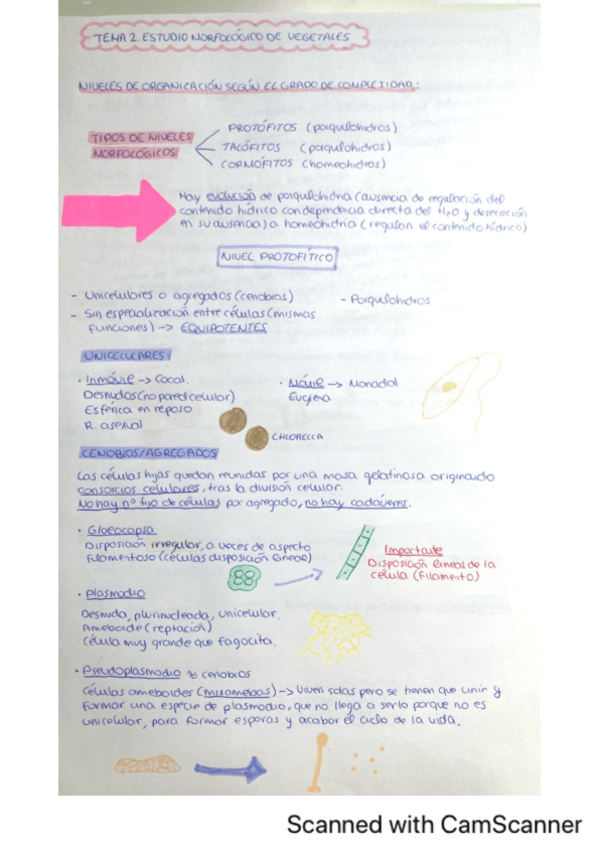 TEMA 2. ESTUDIO MORFOLÓGICO DE VEGETALES
NIVELES DE ORGANIZACIÓN SEGÚN EL GRADO DE COMPLEJIDAD:
TIPOS DE NIVELES
MORFOLÓGICOS
PROTÓFITOS (poiquilohidros)
TALÓFITOS (poiquilohidros)
CORMÓFITOS (homeohidros)
Hay evolución de poiquilohidria (ausencia de regulación del
contenido hídrico con dependencia directa del H2O y desecación
en su ausencia) a homeohidria (regulan el contenido hídrico)
NIVEL PROTOFÍTICO
- Unicelulares o agregados (cenobios)
- Poiquilohidros
- Sin especialización entre células (mismas
funciones) -> EQUIPOTENTES
UNICELULARES
· Inmóvil -> Cocal.
Desnudas (no pared celular)
Esférica en reposo
R. asexual
· Móvil -> Monadal
Euglena
CHLORELLA
CENOBIOS/AGREGADOS
Las células hijas quedan reunidas por una masa gelatinosa originando
consorcios celulares, tras la división celular.
No hay nº fijo de células por agregado, no hay cadáveres.
· Gloeocapsa
Disposición irregular, a veces de aspecto
filamentoso (células disposición lineal)
Importante
Disposición lineal de la
célula (Filamento)
· Plasmodio
Desnuda, plurinucleada, unicelular.
Ameboide (reptación)
Célula muy grande que fagocita.
· Pseudoplasmodio ≈ cenobios
Células ameboides (mixamebas) -> Viven solas pero se tienen que unir y
formar una especie de plasmodio, que no llega a serlo porque no es
unicelular, para formar esporas y acabar el ciclo de la vida.
Scanned with CamScanner